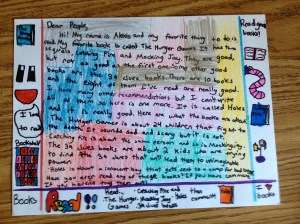 Dear People,
Hi! My name is Alexis and my favorite thing to do is
read. My favorite book is called The Hunger Games. It has two
sequels Catching Fire and Mocking Jay. They are good,
but not as good as the first one. Some other good
books are the 39 clues books. There are 10 books
Right
read are really good.
I have many other recommendations but I can't write
all of them so here is one more. It is called Holes
and it is really good. Here are what the books are about
Hunger Games is about 24 children that fight to
the death. It sounds sad and scary but it is not.
Catching Fire is about the same person and so is Mockingjay
The 39 clues books are about 2 kids who are
to find the 39 clues that will lead them to unimaginable
power!
Holes is about a innocent boy that gets sent to a camp for bad boys.
Have you ever read any of these books? If you have comment
If you have
Read a good
books!
I love
to read
Bookshelf
Books
Read
Read,
The Hunger
Games
Catching Fire and
Mocking Jay
39 clues
than
comment!
I
books